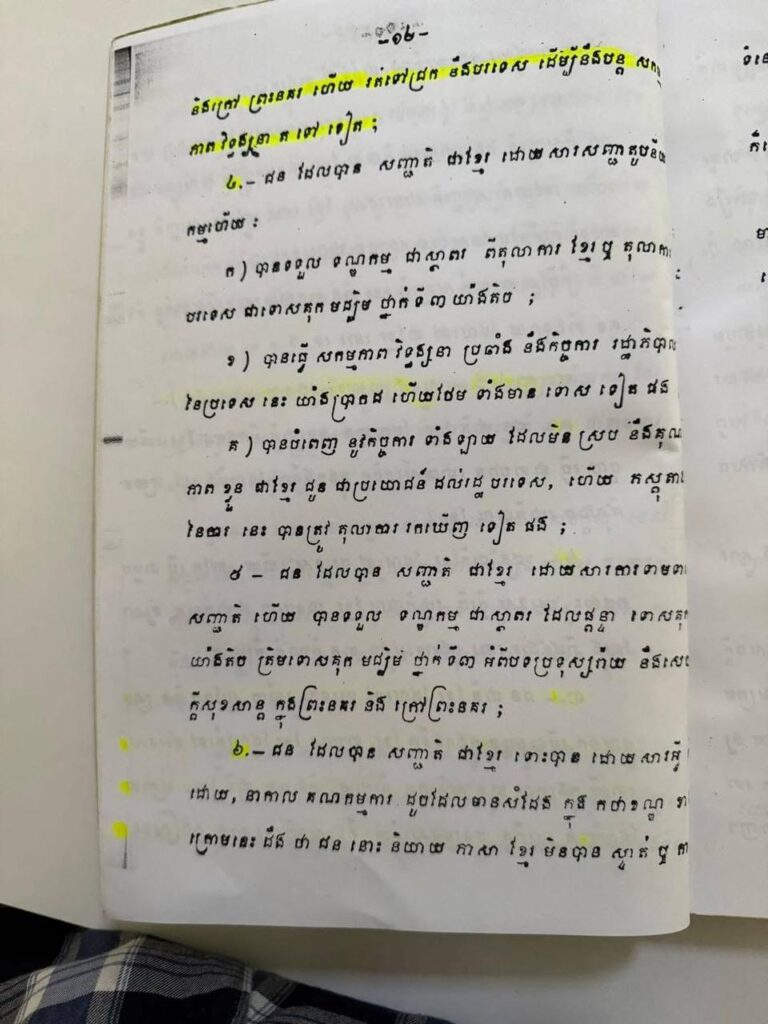 -១៤-
និងក្រៅ ព្រះនគរ ហើយ រត់ទៅជ្រក នឹងបរទេស ដើម្បីនឹងបន្ត សកម្ម
ភាត វិទ្ធង្សនា ត ទៅ ទៀត ;
៤.- ជន ដែលបាន សញ្ជាតិ ជាខ្មែរ ដោយសារសញ្ជាតូបនីយ
កម្មហើយ :
ក ) បានទទួល ទណ្ឌកម្ម ជាស្ថាពរ ពីតុលាការ ខ្មែរ ឬ តុលាការ
បរទេស ជាទោសគុក មជ្ឈិម ថ្នាក់ ទី៣ យ៉ាងតិច ;
ខ ) បានធ្វើ សកម្មភាព វិទ្ធង្សនា ប្រឆាំង នឹងកិច្ចការ រដ្ឋាភិបាល
នៃប្រទេស នេះ យ៉ាងប្រាកដ ហើយថែម ទាំងមាន ទោស ទៀត ផង
គ ) បានបំពេញ នូវកិច្ចការ ទាំងឡាយ ដែលមិន ស្រប នឹងគុណ
ភាព ខ្លួន ជាខ្មែរ ជូន ជាប្រយោជន៍ ដល់រដ្ឋ បរទេស, ហើយ ភស្តុតាង
នៃការ នេះ បានត្រូវ តុលាការ រកឃើញ ទៀត ផង ;
៥ - ជន ដែលបាន សញ្ជាតិ ជាខ្មែរ ដោយសារការទាមទារ
សញ្ជាតិ ហើយ បានទទួល ទណ្ឌកម្ម ជាស្ថាពរ ដែលផ្តន្ទា ទោសគុក
យ៉ាងតិច ត្រឹមទោសគុក មជ្ឈិម ថ្នាក់ ទី៣ អំពីបទប្រទុស្សរ៉ាយ នឹងសេច
ក្តីសុខសាន្ត ក្នុងព្រះនគរ និង ក្រៅព្រះនគរ ;
៦.- ជន ដែលបាន សញ្ជាតិ ជាខ្មែរ ទោះបាន ដោយសារអ្វី
ដោយ, នាកាល គណកម្មការ ដូចដែលមានសំដែង ក្នុង កថាខណ្ឌ ខាង
ក្រោមនេះ ដឹង ថា ជន នោះ និយាយ ភាសា ខ្មែរ មិនបាន ស្ទាត់ ឬ